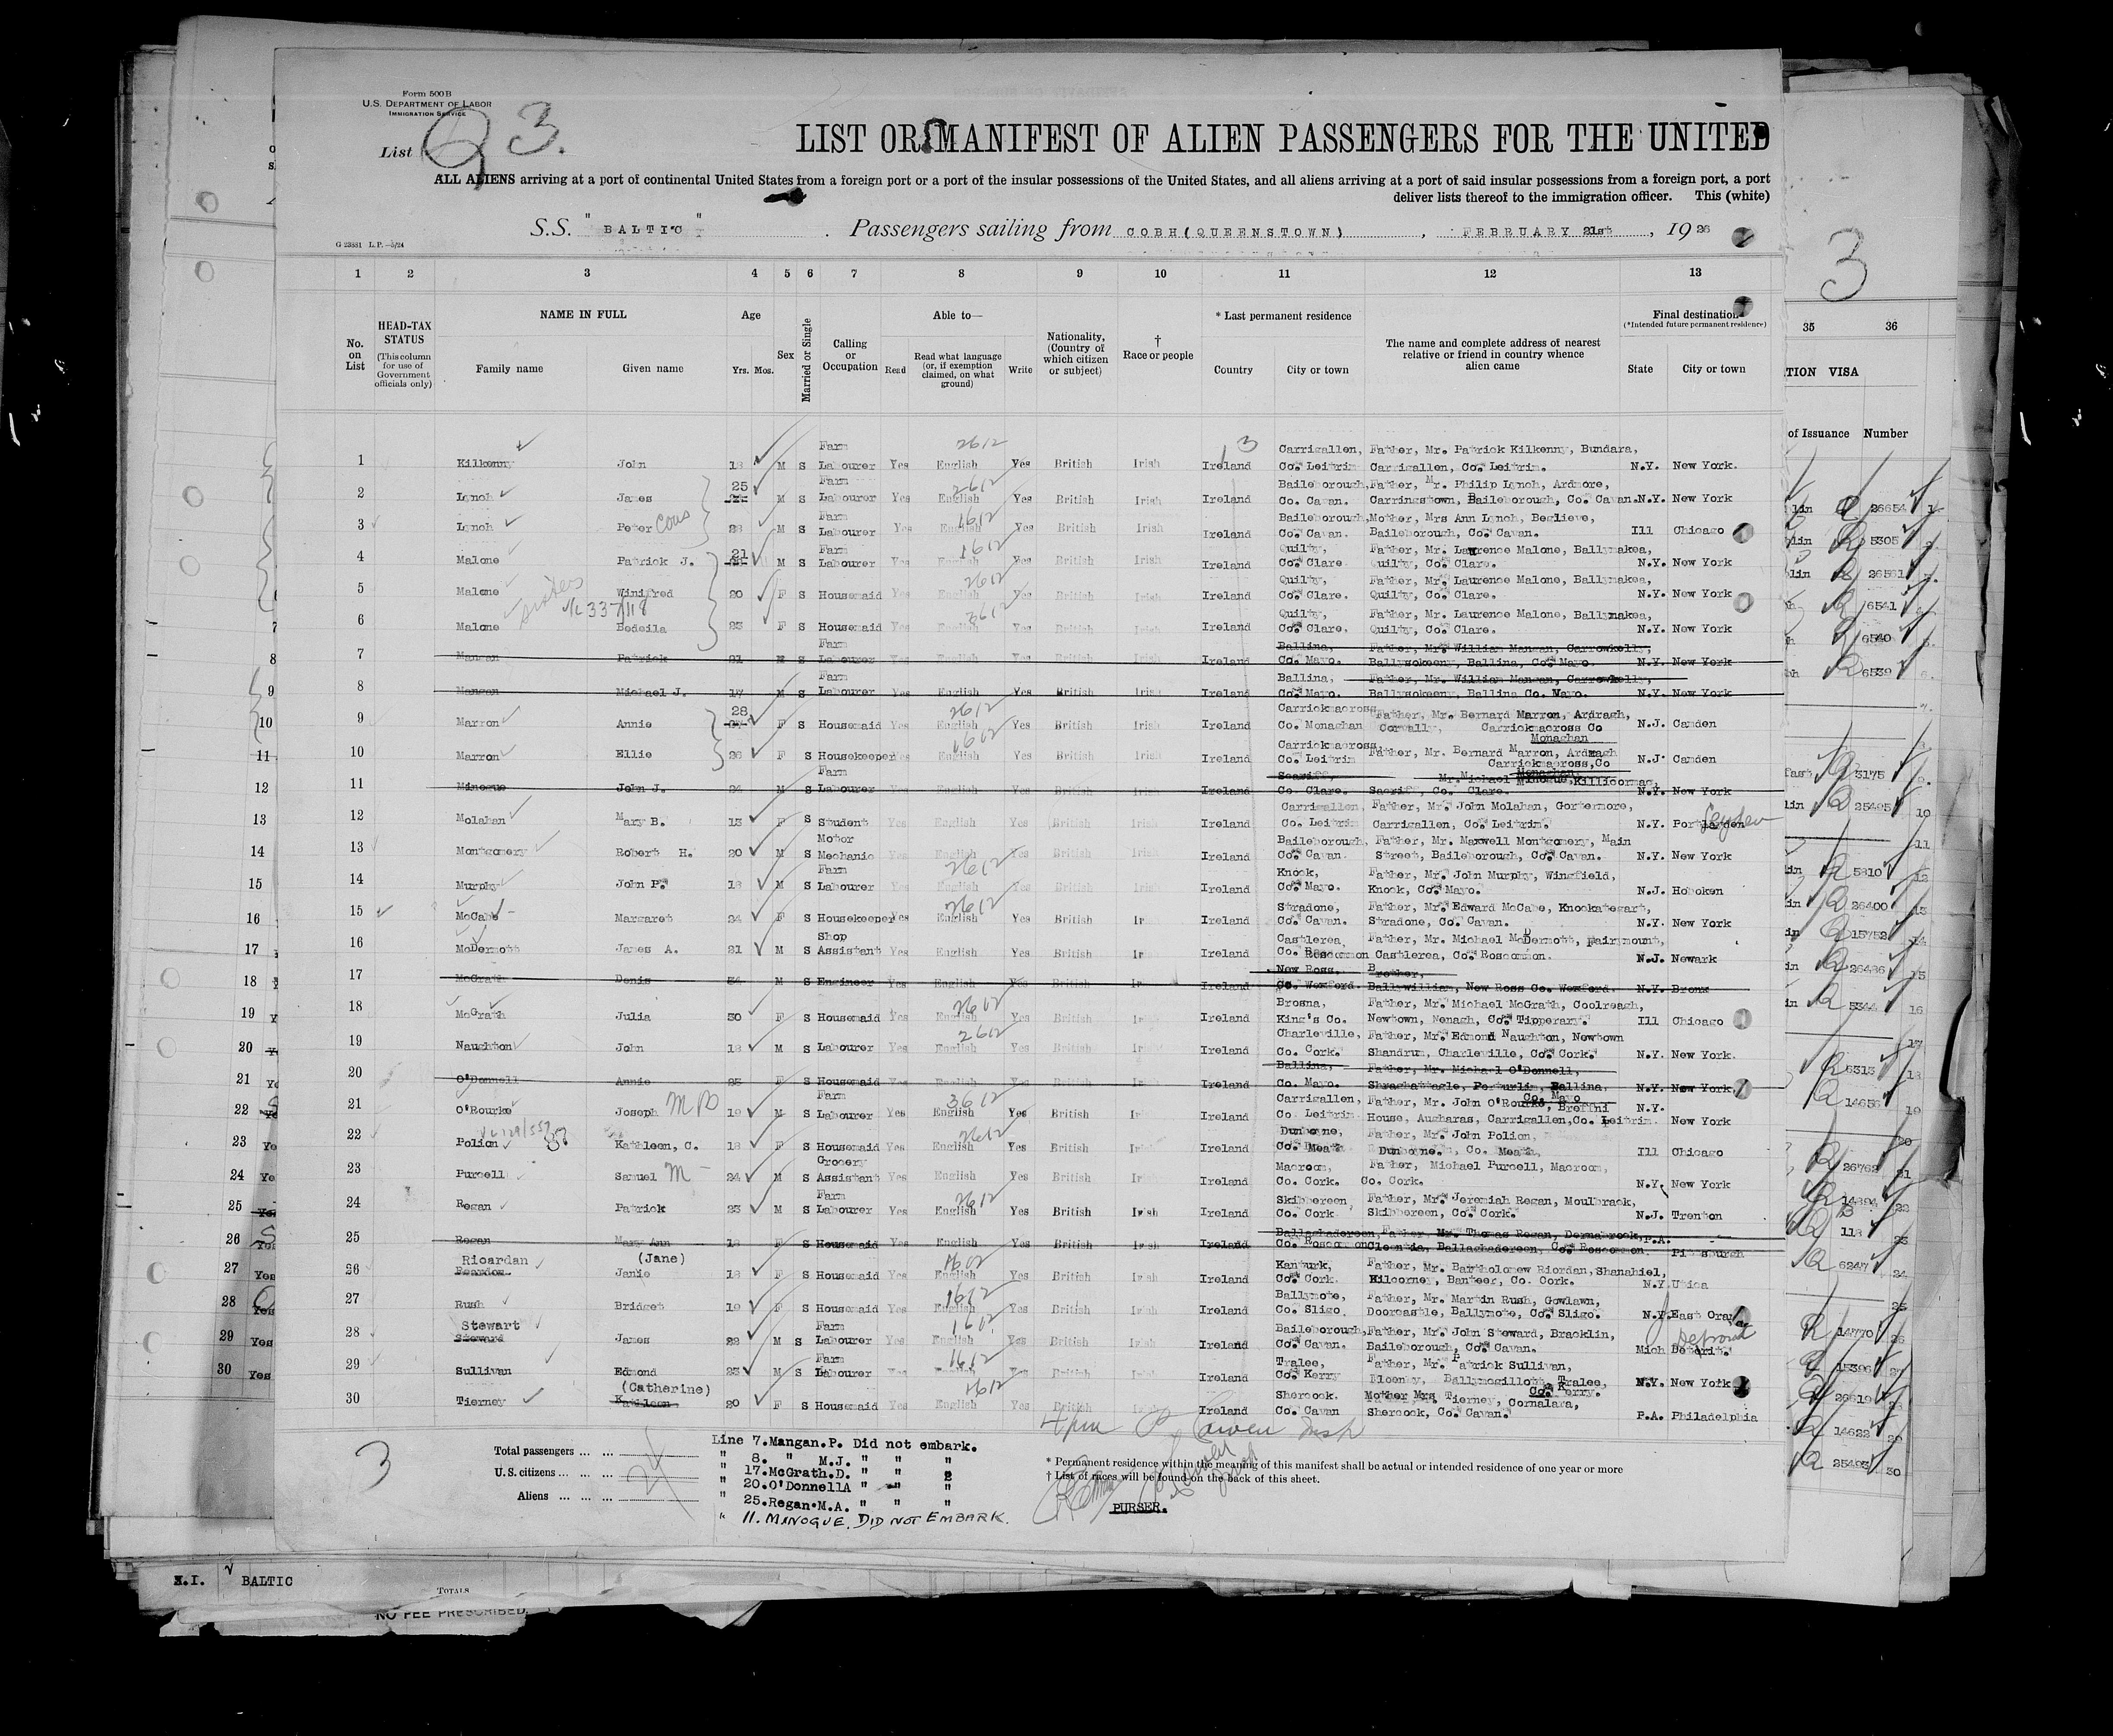 Form 500 B
U.S. DEPARTMENT OF LABOR
IMMIGRATION SERVICE
List 3.
LIST OR MANIFEST OF ALIEN PASSENGERS FOR THE UNITED
ALL ALIENS arriving at a port of continental United States from a foreign port or a port of the insular possessions of the United States, and all aliens arriving at a port of said insular possessions from a foreign port, a port
deliver lists thereof to the immigration officer. This (white)
S.S. "BALTIC". Passengers sailing from COBH(QUEENSTOWN), FEBRUARY 21st, 1926
G 23881 L.P.—5/24
3
1 2 3 4 5 6 7 8 9 10 11 12 13
35 36
No. on List
HEAD-TAX STATUS (This column for use of Government officials only)
NAME IN FULL
Family name Given name
Age
Yrs. Mos.
Sex
Married or Single
Calling or Occupation
Able to—
Read Read what language (or, if exemption claimed, on what ground) Write
Nationality, (Country of which citizen or subject)
† Race or people
* Last permanent residence
Country City or town
The name and complete address of nearest relative or friend in country whence alien came
Final destination (*Intended future permanent residence)
State City or town
TION VISA
of Issuance Number
1 Kilkenny John 18 M S Farm Labourer Yes English Yes British Irish Ireland Carrigallen, Co. Leitrim Father, Mr. Patrick Kilkenny, Bundara, Carrigallen, Co. Leitrim. N.Y. New York.
2 Lynch James 25 M S Farm Labourer Yes English Yes British Irish Ireland Baileborough, Co. Cavan. Father, Mr. Philip Lynch, Ardmore, Carringstown, Baileborough, Co. Cavan. N.Y. New York
3 Lynch Peter Cous 28 M S Farm Labourer Yes English Yes British Irish Ireland Baileborough, Co. Cavan. Mother, Mrs Ann Lynch, Beglieve, Baileborough, Co. Cavan. Ill Chicago
4 Malone Patrick J. 21 M S Farm Labourer Yes English Yes British Irish Ireland Quilty, Co. Clare Father, Mr. Laurence Malone, Ballymakea, Quilty, Co. Clare. N.Y. New York
5 Malone Winifred 20 F S Housemaid Yes English Yes British Irish Ireland Quilty, Co. Clare. Father, Mr. Laurence Malone, Ballymakea, Quilty, Co. Clare. N.Y. New York
sisters
6 Malone Bedeila 23 F S Housemaid Yes English Yes British Irish Ireland Quilty, Co. Clare. Father, Mr. Laurence Malone, Ballymakea, Quilty, Co. Clare. N.Y. New York
7 Mangan Patrick 21 M S Farm Labourer Yes English Yes British Irish Ireland Ballina, Co. Mayo. Father, Mr. William Mangan, Carrowkelly, Ballysokeeny, Ballina, Co. Mayo. N.Y. New York
8 Mangan Michael J. 17 M S Farm Labourer Yes English Yes British Irish Ireland Ballina, Co. Mayo. Father, Mr. William Mangan, Carrowkelly, Ballysokeeny, Ballina Co. Mayo. N.Y. New York
9 Marron Annie 28 F S Housemaid Yes English Yes British Irish Ireland Carrickmacross, Co. Monaghan Father, Mr. Bernard Marron, Ardragh, Corvally, Carrickmacross Co Monaghan N.J. Camden
10 Marron Ellie 26 F S Housekeeper Yes English Yes British Irish Ireland Carrickmacross, Co. Leitrim Father, Mr. Bernard Marron, Ardragh Carrickmacross, Co Monaghan. N.J. Camden
11 Minogue John J. 24 M S Farm Labourer Yes English Yes British Irish Ireland Scariff, Co Clare. Mr. Michael Minogue, Killicormac, Scariff, Co. Clare. N.Y. New York
12 Molahan Mary B. 13 F S Student Yes English Yes British Irish Ireland Carrigallen, Co. Leitrim Father, Mr. John Molahan, Gortermore, Carrigallen, Co. Leitrim. N.Y. Port Leyden
13 Montgomery Robert H. 20 M S Motor Mechanic Yes English Yes British Irish Ireland Baileborough, Co. Cavan. Father, Mr. Maxwell Montgomery, Main Street, Baileborough, Co. Cavan. N.Y. New York
14 Murphy John P. 18 M S Farm Labourer Yes English Yes British Irish Ireland Knock, Co. Mayo. Father, Mr. John Murphy, Wingfield, Knock, Co. Mayo. N.J. Hoboken
15 McCabe Margaret 24 F S Housekeeper Yes English Yes British Ir Ireland Stradone, Co. Cavan. Father, Mr. Edward McCabe, Knockategart, Stradone, Co. Cavan. N.Y. New York
16 McDermott James A. 21 M S Shop Assistant Yes English Yes British Ir Ireland Castlerea, Co. Roscommon Father, Mr. Michael McDermott, Fairymount, Castlerea, Co. Roscommon. N.J. Newark
17 McGrath Denis 34 M S Engineer Yes English Yes British Ir Ireland New Ross, Co. Wexford. Brother, Ballywilliam, New Ross Co. Wexford. N.Y. Bronx
18 McGrath Julia 30 F S Housemaid Yes English Yes British Ir Ireland Brosna, King's Co. Father, Mr. Michael McGrath, Coolreagh, Newtown, Nenagh, Co. Tipperary. Ill Chicago
19 Naughton John 18 M S Labourer Yes English Yes British Ir Ireland Charleville, Co. Cork. Father, Mr. Edmond Naughton, Newtown Shandrum, Charleville, Co. Cork. N.Y. New York.
20 O'Donnell Annie 25 F S Housemaid Yes English Yes British Ir Ireland Ballina, Co. Mayo. Father, Mr. Michael O'Donnell, Shraghattagle, Porturlin, Ballina, Co. Mayo N.Y. New York,
21 O'Rourke Joseph 19 M S Farm Labourer Yes English Yes British Ir Ireland Carrigallen, Co. Leitrim. Father, Mr. John O'Rourke, Breffni House, Augharas, Carrigallen, Co. Leitrim. N.Y. New York
22 Polion Kathleen, C. 18 F S Housemaid Yes English Yes British Ir Ireland Dunboyne, Co. Meath Father, Mr. John Polion, Dunboyne. Co. Meath, Ill Chicago
23 Purcell Samuel 24 M S Grocery Assistant Yes English Yes British Ir Ireland Macroom, Co. Cork. Father, Michael Purcell, Macroom, Co. Cork. N.Y. New York
24 Regan Patrick 23 M S Farm Labourer Yes English Yes British Irish Ireland Skibbereen Co. Cork Father, Mr. Jeremiah Regan, Moulbrack, Skibbereen, Co. Cork. N.J. Trenton
25 Regan Mary Ann 18 F S Housemaid Yes English Yes British Irish Ireland Ballaghadereen, Co. Roscommon Father, Mr. Thomas Regan, Dernabrock, Cloontia, Ballaghadereen, Co. Roscommon. P.A. Pittsburgh
26 Riordan Reardon Janie (Jane) 18 F S Housemaid Yes English Yes British Irish Ireland Kanturk, Co. Cork. Father, Mr. Bartholomew Riordan, Shanahiel, Kilcorney, Banteer, Co. Cork. N.Y. Utica
27 Rush Bridget 19 F S Housemaid Yes English Yes British Irish Ireland Ballymote, Co. Sligo. Father, Mr. Martin Rush, Gowlawn, Doorcastle, Ballymote, Co. Sligo. N.Y. East Orange
28 Stewart Steward James 22 M S Farm Labourer Yes English Yes British Irish Ireland Baileborough, Co. Cavan. Father, Mr. John Steward, Bracklin, Baileborough, Co. Cavan. Mich Detroit
29 Sullivan Edmond 23 M S Farm Labourer Yes English Yes British Irish Ireland Tralee, Co. Kerry Father, Mr. Patrick Sullivan, Ballymogillott, Tralee, Co. Kerry. N.Y. New York
30 Tierney (Catherine) Kathleen 20 F S Housemaid Yes English Yes British Irish Ireland Shercock. Co. Cavan Mother Mrs Tierney, Cornalara, Shercock, Co. Cavan. P.A. Philadelphia
3
Total passengers ... ... 24
U.S. citizens ... ... ...
Aliens ... ... ...
Line 7. Mangan.P. Did not embark.
" 8. " M.J. " " "
" 17. McGrath.D. " " "
" 20. O'Donnell A " " "
" 25. Regan.M.A. " " "
" 11. MINOGUE. DID NOT EMBARK.
* Permanent residence within the meaning of this manifest shall be actual or intended residence of one year or more
† List of races will be found on the back of this sheet.
PURSER.
26654
5305
26561
6541
6540
6539
3175
25495
5810
26400
15752
26486
5344
5313
14656
26762
14894
118
6247
14770
15396
26619
14622
25493
X.I. BALTIC
TOTALS
NO FEE PRESCRIBED